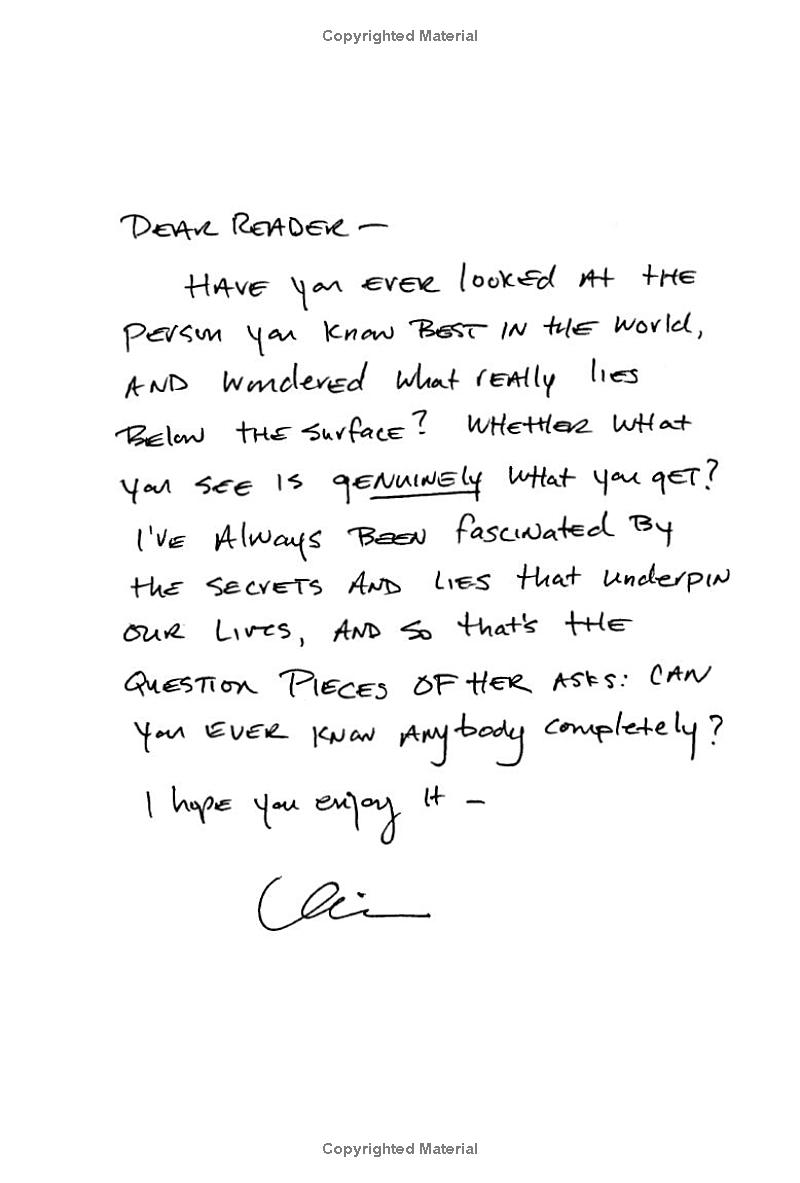 Copyrighted Material
DEAR READER —
HAVE you EVER looked At tHE
Person you know BEST IN tHE world,
AND wondered what rEAlly liEs
BElow tHE surface? WHEttIER WHat
you SEE IS gENUINELy wHat you gET?
I'VE Always BEEN fascinated By
tHE SECrETS AND LIES that underpIN
OUR LIVES, AND So that's tHE
QuESTION PIECES OF HER ASKS: CAN
you EVER KNOW ANybody completely?
I hopE you enjoy It —
Copyrighted Material